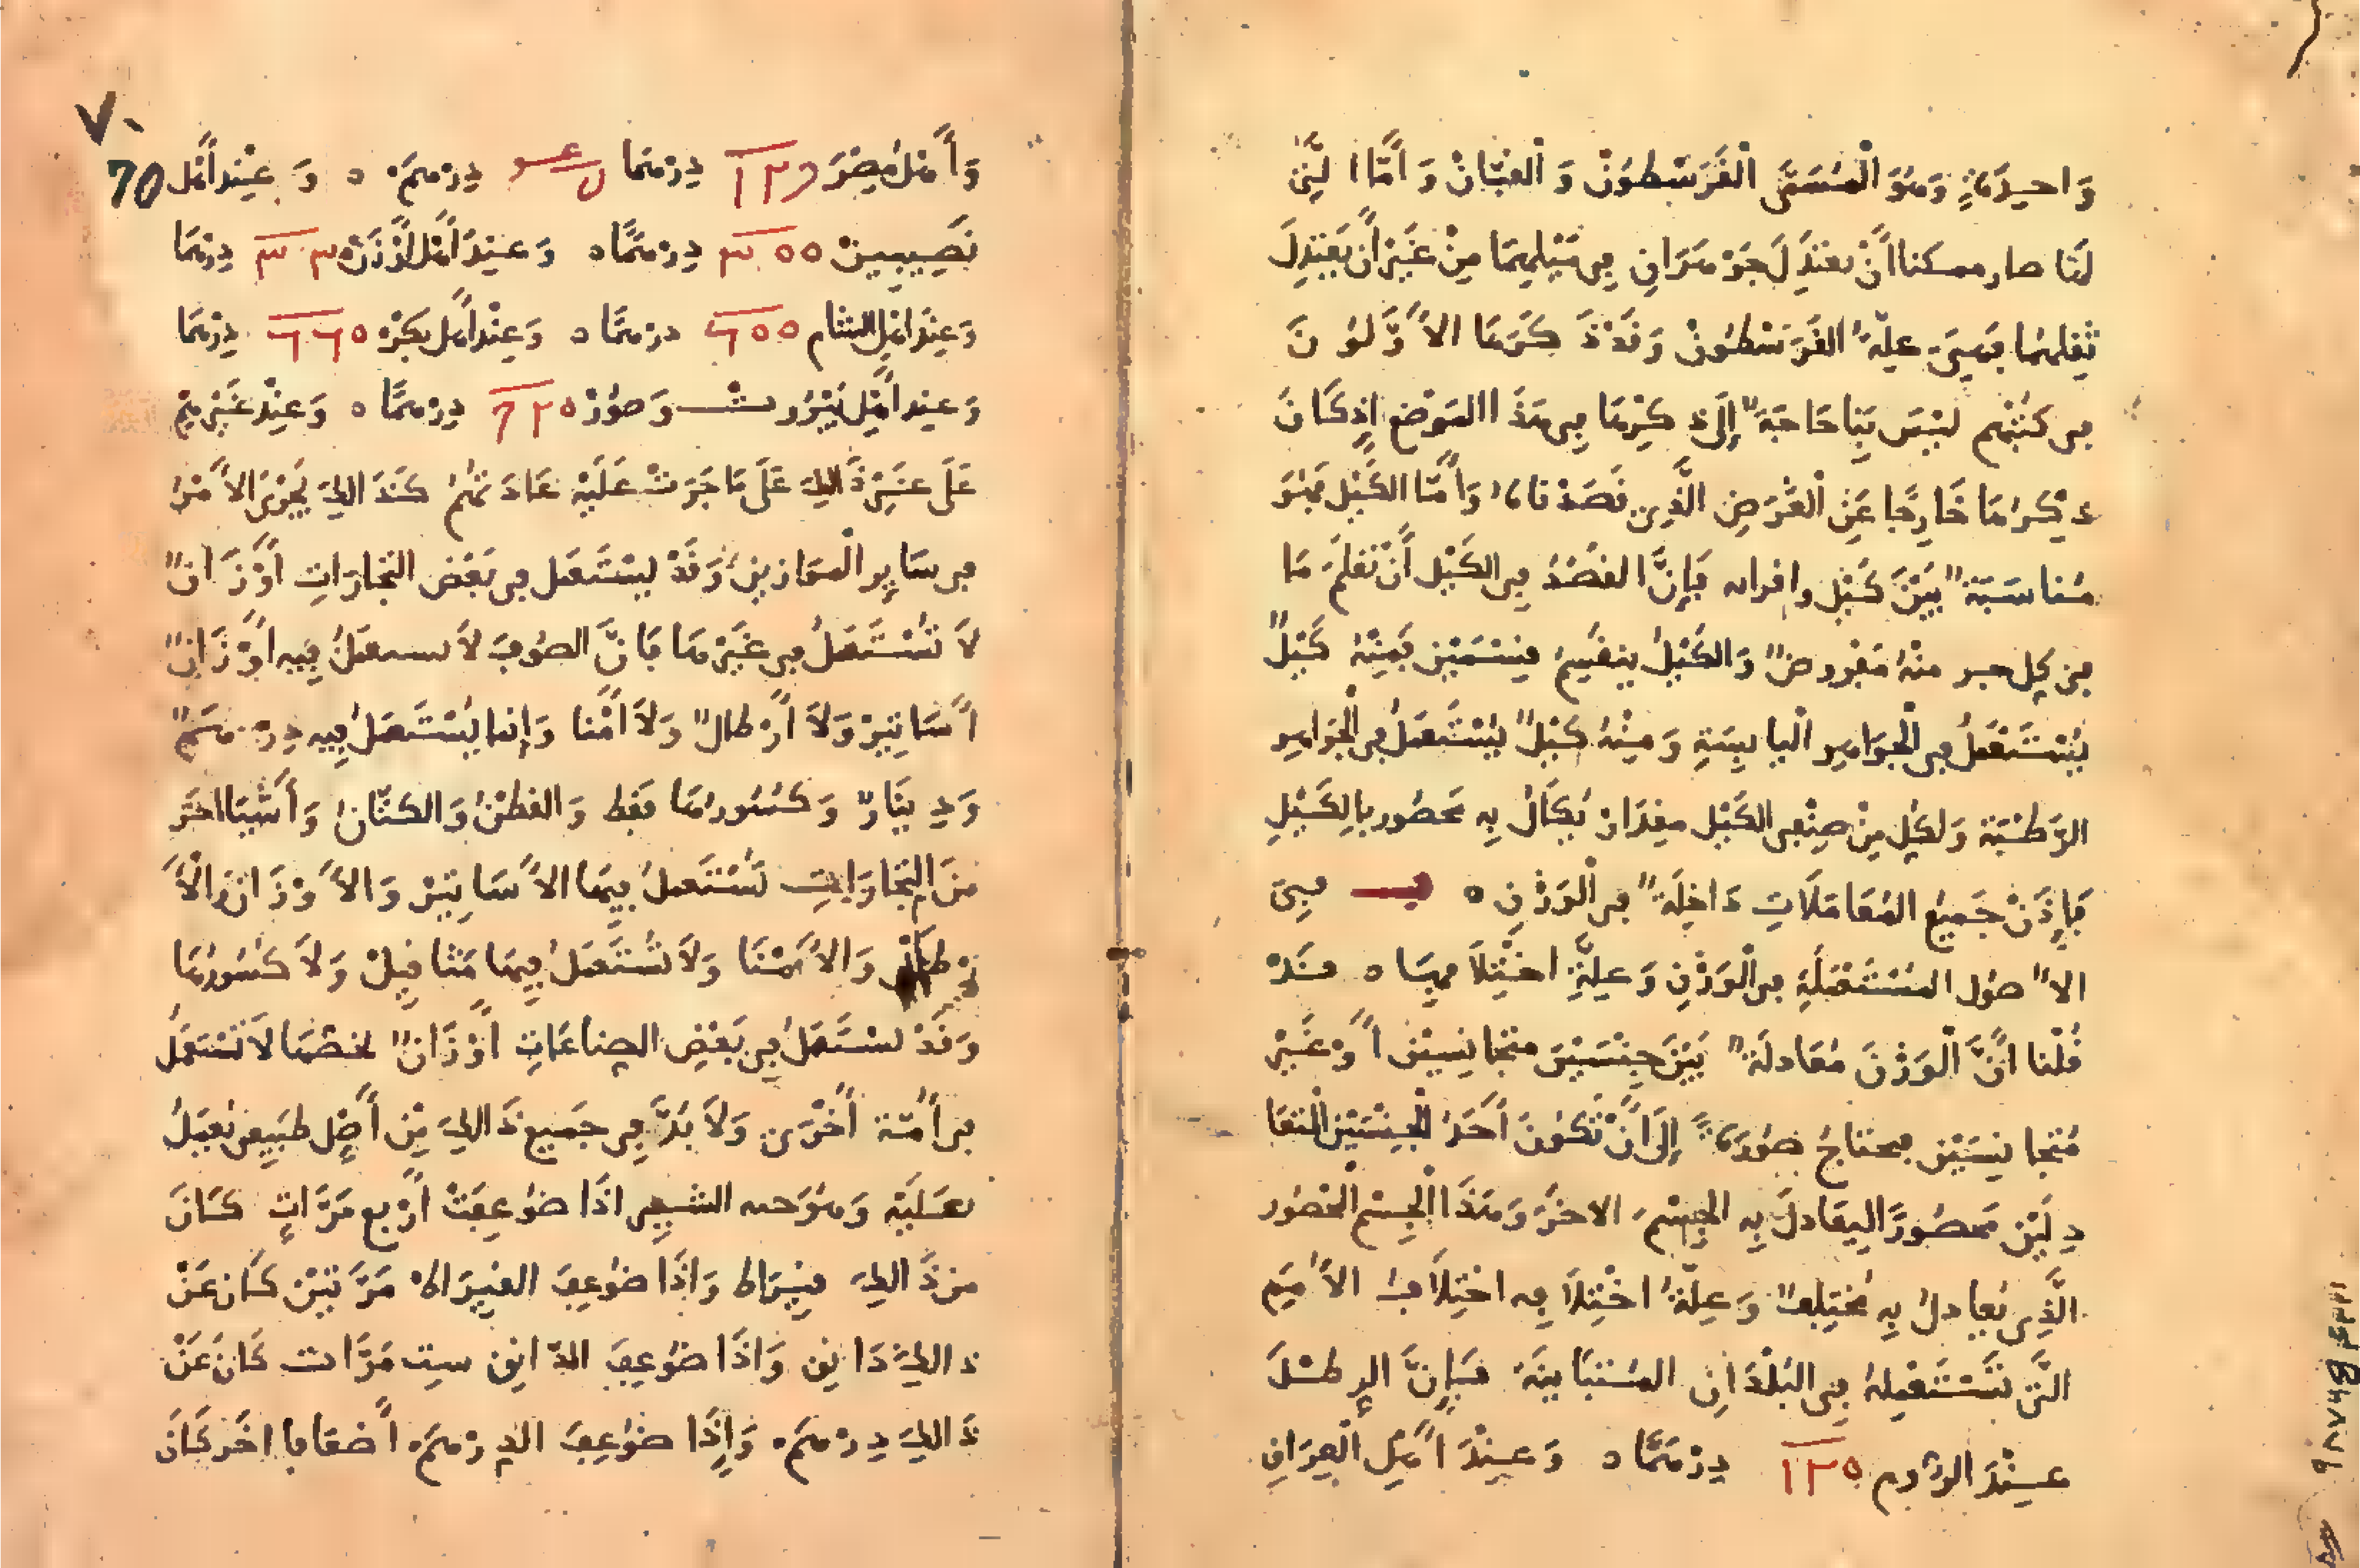 وَاحِدَةٍ وَهُوَ الْمُسَمَّى الْقَرَسْطُونْ وَ الْقبَّانْ وَ أَمَّا الَّتِي
لَمَّا صار ممكنا أَنْ يعتَدِلَ جَوْهَرَانِ فِي مَيْلِهِمَا مِنْ غَيْرِ أَنْ يَعْتَدِلَ
ثِقلهُمَا فَهِيَ علَّةُ القَرَسْطُونْ وَقَدْ ذَكَرَهَا الأَوَّلُونَ
فى كُتُبهُم لَيْسَ بِنَا حَاجَةٌ إِلَى ذِكْرِهَا فِى هَذَا المَوْضِع إِذ كَانَ
ذِكْرُهَا خَارِجًا عَنِ الْغَرَضِ الَّذِى قَصَدْنَاهُ وَأَمَّا الكَيْل فَهُوَ
مُنَاسَبَةٌ بَيْنَ كَيْلٍ فَإِنَّ القَصْدَ فِي الكَيْل أَنْ نَعْلَمَ مَا
فى كل منْهُ مَفْرُوضٌ وَالكَيْلُ ينقَسِمُ قِسْمَيْنِ فَمِنْهُ كَيْلٌ
يُسْتَعْمَلُ فِى الْجَوَاهِرِ الْيَابِسَةِ وَمِنْهُ كَيْلٌ يُسْتَعْمَلُ فِى الْجَوَاهِرِ
الرَّطْبَة وَلكِلِّ مِنْ صِنْفَى الكَيْل مِقدَارٌ يُكَالُ بِهِ مَحْصُور بِالكَيْلِ
فَإِذَنْ جَمِيعُ المُعَامَلَاتِ دَاخِلَةٌ فِى الْوَزْنِ ه فِى
الأُصُول المُسْتَعْمَلَةِ فِى الْوَزْنِ وَعِلَّةِ اخْتِلَافِهَا ه قَدْ
قُلْنَا أَنَّ الْوَزْنَ مُعَادلَةٌ بَيْنَ جِسْمَيْنِ متجَانِسَيْنِ أَوْ غَيْرِ
مُتَجَانِسَيْنِ فيحتاجُ ضَرُورَةً إِلَى أَنْ تَكُونَ أَحَدُ الْجِسْمَيْنِ الْمُتَعَا
دِلَيْنِ مَحْصُورًا لِيعَادلَ بِهِ الجِسْمَ الاخَرَ وَهَذَا الْجِسْمُ الْمَحْصُور
الَّذِى يُعَادلُ بِهِ مُخْتَلِفٌ وَعِلَّةُ اخْتِلَافِه اخْتِلَافُ الأُمَمِ
الَّتى تَسْتَعْمِلهُ فِى البُلْدَانِ المُتَبَايِنَةِ فَإِنَّ الرِطْلَ
عِنْدَ الرُّوم ١٢٥ دِرْهَمًا ه وَعِنْدَ أَهْلِ الْعِرَاقِ
٧٠
وَأَهْلُ مِصْرَ دِرْهَمًا دِرْهَم ه وَ عِنْدَ أَهْل 70
نَصِيبِينْ ٣٠٠ دِرْهَمًا ه وَعِنْدَ أَهْلِ أَرْزَنْ دِرْهَمًا
وَعِنْدَ أَهْلِ الشَّام ٦٠٠ دِرْهَمًا ه وَعِنْدَ أَهْلِ دِرْهَمًا
وَعِنْدَ أَهْلِ بَيْرُوتْ وَصُورْ دِرْهَمًا ه وَعِنْدَ غَيْرِهِمْ
عَلَى غَيْرِ ذَالِكَ عَلَى مَا جَرَتْ عَلَيْهِ عَادَتُهُمْ كَذَالِكَ يَجْرِي الأَمْرُ
فِى سَايِر الْمَوَازِين وَقَدْ يُسْتَعْمَل فِى بَعْض التِّجَارَاتِ أَوْزَانٌ
لَا تُسْتَعْمَلُ فِى غَيْرِهَا فَإِنَّ الصُوفَ لَا يستعمَلُ فِيهِ أَوْزَانٌ
أَسَاتِيرْ وَلَا أَرْطَالٌ وَلَا أَمْنَا وَإِنَّمَا يُسْتَعْمَلُ فِيهِ دِرْهَمٌ
وَدِينَارٌ وَكُسُورهُمَا فَقَط وَالقطْنُ وَالكتَّانُ وَأَشْيَا اخَر
مِنَ التِّجَارَاتِ تُسْتَعمَلُ فِيهَا الأَسَاتِيرْ وَالأَوْزَانُ وَالأَ
رْطَالُ وَالأَمْنَا وَلَا تُسْتَعْمَلُ فِيهَا مَثَاقِيلْ وَلَا كُسُورُهَا
وَقَدْ تُسْتَعْمَلُ فِى بَعْضِ الصِنَاعَاتِ أَوْزَانٌ تخصُّهَا لَا تُسْتَعْمَلُ
فِى أُمَّة أُخْرَى وَلَا بُدَّ فِى جَمِيعِ ذَالِكَ مِنْ أَصْلٍ طَبِيعِى يُعْمَلُ
عَلَيْهِ وَهُوَ حبه الشَّعِير اذَا ضُوعِفَتْ أَرْبعَ مَرَّاتٍ كَانَ
مِن ذَالِكَ قِيرَاط وَاذَا ضُوعِفَ القِيرَاط مَرَّتَيْنِ كَانَ عَنْ
ذَالِكَ دَانِق وَاذَا ضُوعِفَ الدَّانِق سِت مَرَّات كَانَ عَنْ
ذَالِكَ دِرْهَم وَإِذَا ضُوعِفَ الدِرْهَم أَضْعَافا اخَر كَانَ